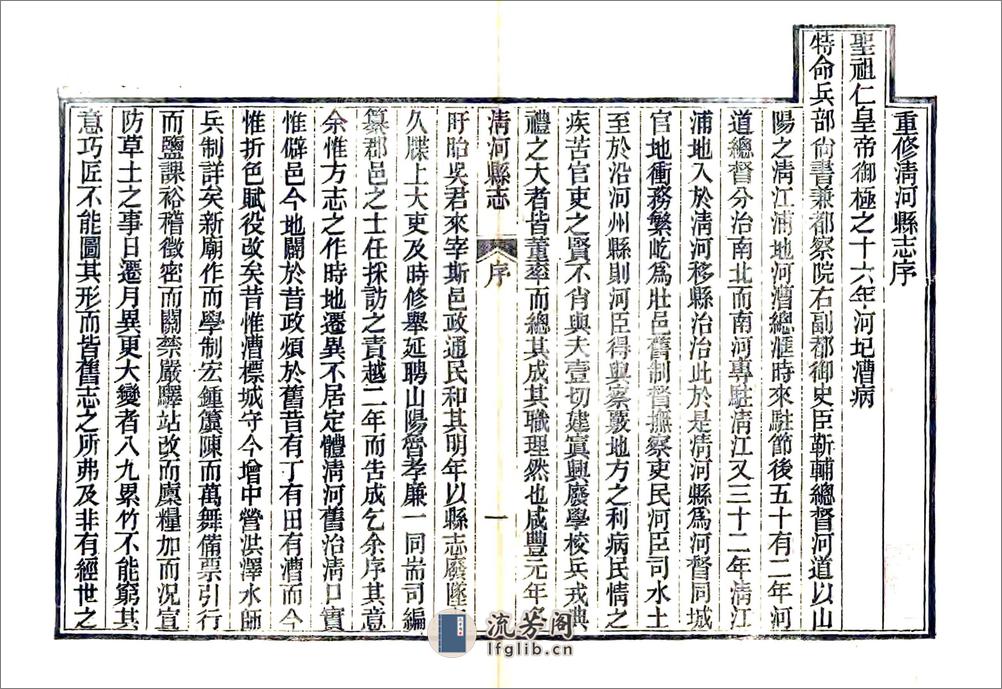 重修淸河縣志序
聖祖仁皇帝御極之十六年河圮漕病
特命兵部尙書兼都察院右副都御史臣靳輔總督河道以山
陽之淸江浦地河漕總滙時來駐節後五十有二年河
道總督分治南北而南河專駐淸江又三十二年淸江
浦地入於淸河移縣治治此於是淸河縣爲河督同城
官地衝務繁屹爲壯邑舊制督撫察吏民河臣司水土
至於沿河州縣則河臣得與察覈地方之利病民情之
疾苦官吏之賢不肖與夫壹切建寘興廢學校兵戎典
禮之大者皆董率而總其成其職理然也咸豐元年
淸河縣志
序
一
盱眙吳君來宰斯邑政通民和其明年以縣志廢墜
久牒上大吏及時修舉延聘山陽魯孝廉一同耑司編
纂郡邑之士任採訪之責越二年而告成乞余序其意
余惟方志之作時地遷異不居定體淸河舊治淸口實
惟僻邑今地闢於昔政煩於舊昔有丁有田有漕而今
惟折色賦役改矣昔惟漕標城守今增中營洪澤水師
兵制詳矣新廟作而學制宏鍾簴陳而萬舞備票引行
而鹽課裕稽徵密而關禁嚴驛站改而廩糧加而況宣
防草土之事日遷月異更大變者八九累竹不能窮其
意巧匠不能圖其形而皆舊志之所弗及非有經世之
流芳阁
lfglib.cn